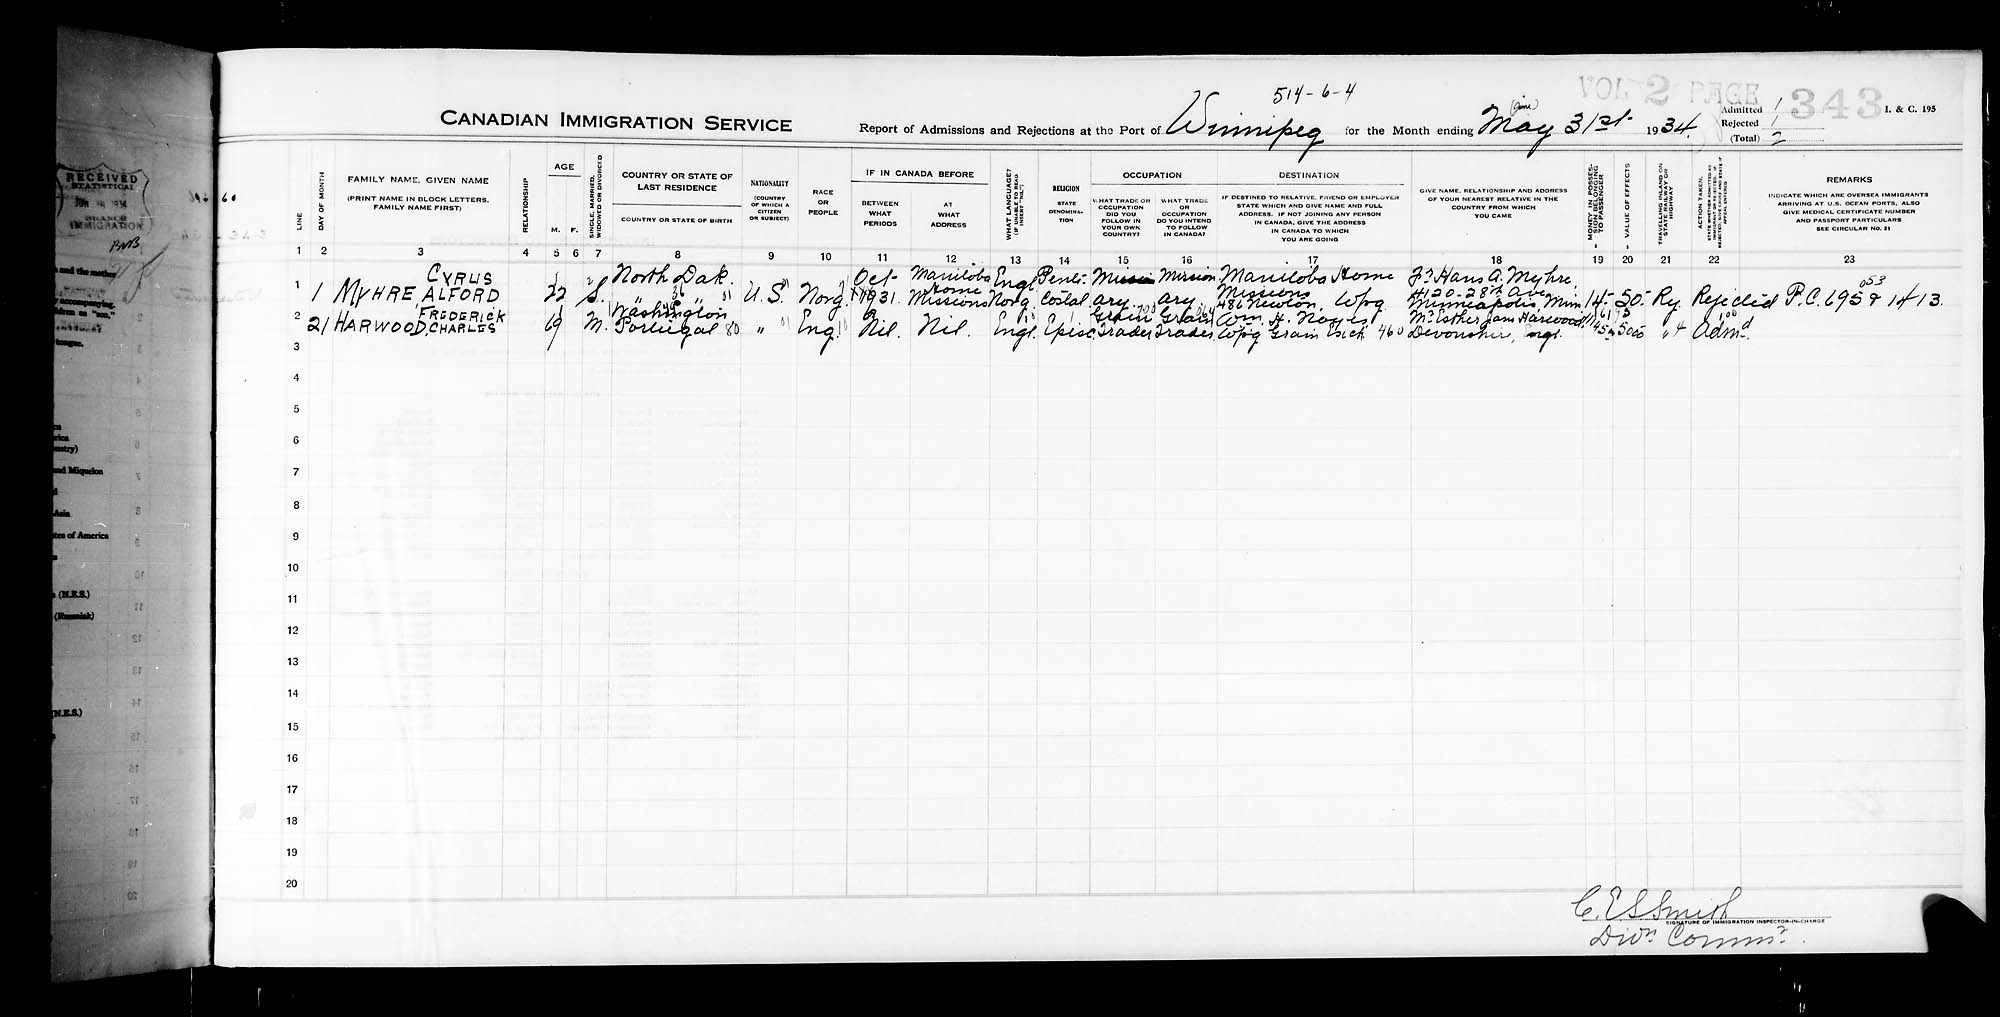 514-6-4
VOL 2 PAGE 343
CANADIAN IMMIGRATION SERVICE
Report of Admissions and Rejections at the Port of Winnipeg for the Month ending May 31st 1934.
(June)
Admitted 1
Rejected 1
(Total) 2
I. & C. 195
LINE
DAY OF MONTH
FAMILY NAME, GIVEN NAME
(PRINT NAME IN BLOCK LETTERS, FAMILY NAME FIRST)
RELATIONSHIP
AGE
M. F.
SINGLE, MARRIED, WIDOWED OR DIVORCED
COUNTRY OR STATE OF LAST RESIDENCE
COUNTRY OR STATE OF BIRTH
NATIONALITY
(COUNTRY OF WHICH A CITIZEN OR SUBJECT)
RACE OR PEOPLE
IF IN CANADA BEFORE
BETWEEN WHAT PERIODS
AT WHAT ADDRESS
WHAT LANGUAGE?
(IF UNABLE TO READ INSERT "NIL")
RELIGION
STATE DENOMINA-TION
OCCUPATION
WHAT TRADE OR OCCUPATION DID YOU FOLLOW IN YOUR OWN COUNTRY?
WHAT TRADE OR OCCUPATION DO YOU INTEND TO FOLLOW IN CANADA?
DESTINATION
IF DESTINED TO RELATIVE, FRIEND OR EMPLOYER STATE WHICH AND GIVE NAME AND FULL ADDRESS. IF NOT JOINING ANY PERSON IN CANADA, GIVE THE ADDRESS IN CANADA TO WHICH YOU ARE GOING
GIVE NAME, RELATIONSHIP AND ADDRESS OF YOUR NEAREST RELATIVE IN THE COUNTRY FROM WHICH YOU CAME
MONEY IN POSSES-SION BELONGING TO PASSENGER
VALUE OF EFFECTS
TRAVELLING INLAND ON STATE RAILWAY OR HIGHWAY
ACTION TAKEN.
REMARKS
INDICATE WHICH ARE OVERSEA IMMIGRANTS ARRIVING AT U.S. OCEAN PORTS, ALSO GIVE MEDICAL CERTIFICATE NUMBER AND PASSPORT PARTICULARS
SEE CIRCULAR NO. 21
1 2 3 4 5 6 7 8 9 10 11 12 13 14 15 16 17 18 19 20 21 22 23
1 1 MYHRE, CYRUS ALFORD 22 S. North Dak. " " U.S. Norg. Oct 1931. Manitoba Home Missions Engl Norg. Pente-costal Missionary Missionary Manitoba Home Missions 486 Newton, Wpg Fr. Hans A. Myhre, 4120-28th Ave Minneapolis Minn 14- 50- Ry Rejected P.C. 695 & 1413.
053
2 21 HARWOOD, FREDERICK CHARLES 69 M. Washington Portugal 80 " Eng. Nil. Nil. Engl. Episc. Grain Trader Grain Trader Wm. H. Noyes Wpg Grain Exch 460 Mrs Esther Jans Harwood, Devonshire, Engl. " Admd.
3
4
5
6
7
8
9
10
11
12
13
14
15
16
17
18
19
20
C. E. S. Smith
SIGNATURE OF IMMIGRATION INSPECTOR-IN-CHARGE
Divn Commr.
RECEIVED
STATISTICAL
BRANCH
IMMIGRATION
and the mother
accompanying,
and Miquelon
Asia
tes of America
(N.E.S.)
(N.E.S.)